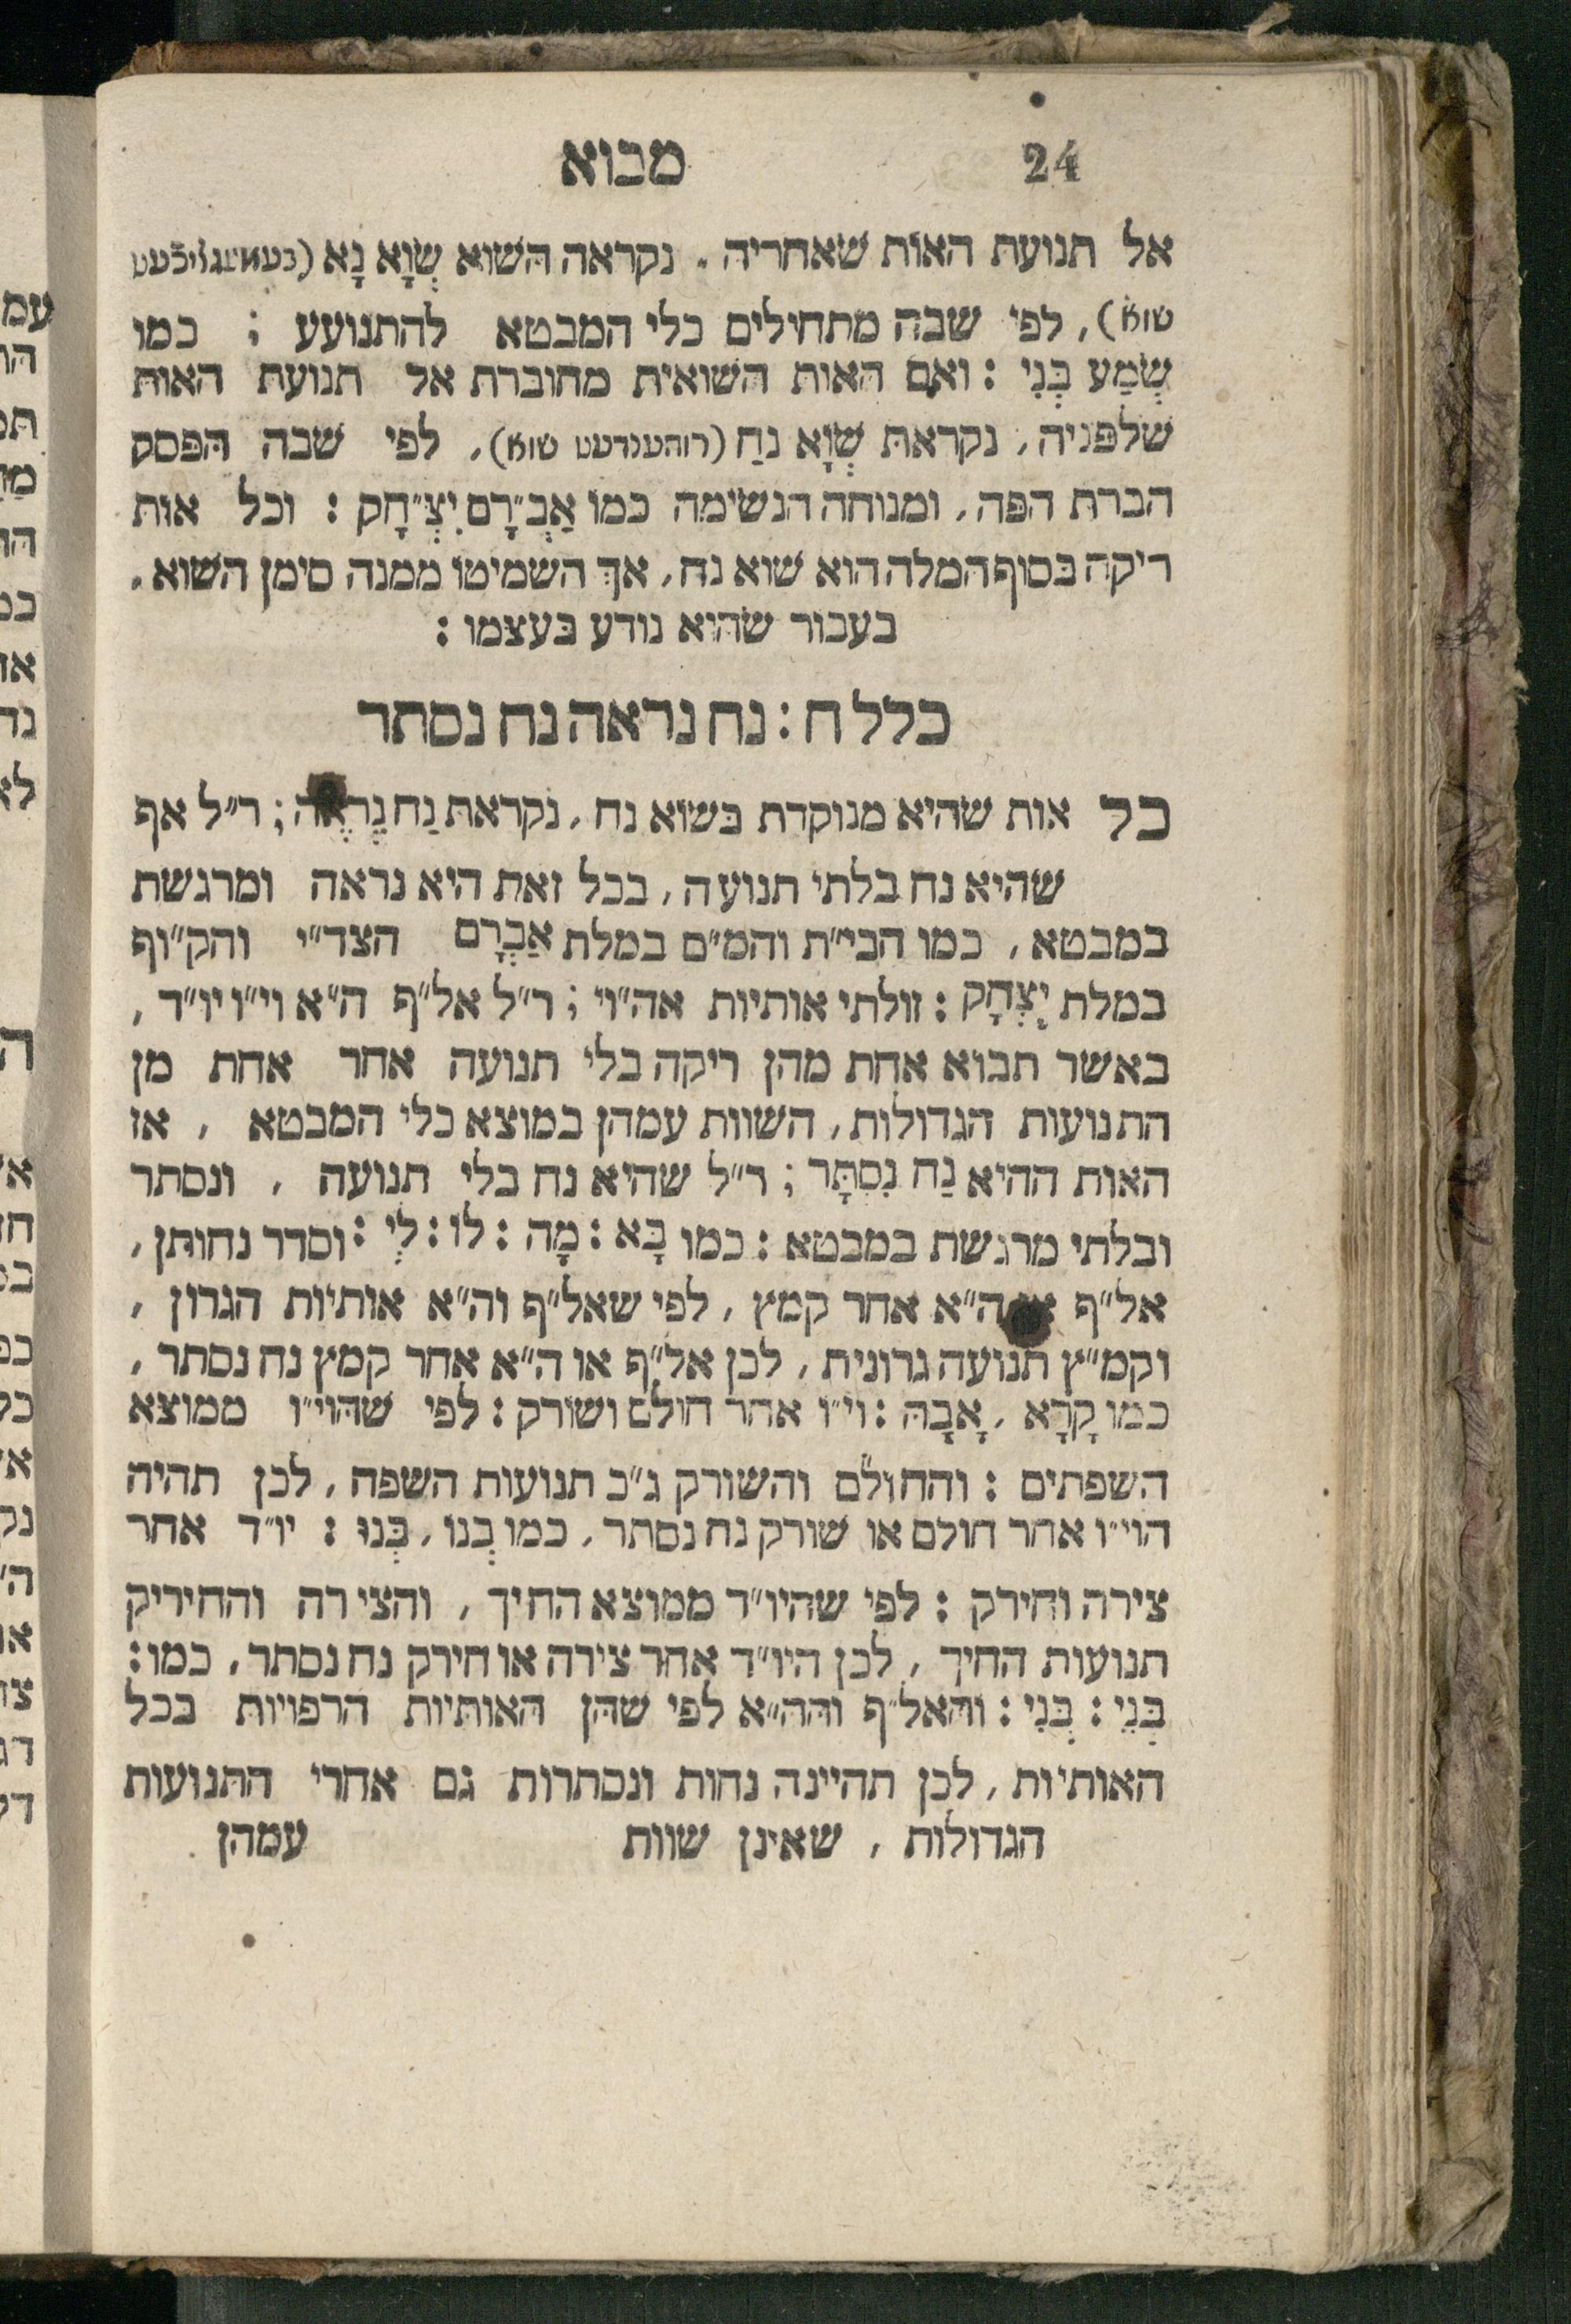 24 מבוא
אל תנועת האות שאחריה. נקראה השוא שְׁוָא נָא (בעוועגליכֿעט
שווא), לפי שבה מתחילים כלי המבטא להתנועע; כמו
שְׁמַע בְּנִי: ואם האות השואית מחוברת אל תנועת האות
שלפניה, נקראת שְׁוָא נַח (רוהענדעט שווא), לפי שבה הפסק
הברת הפה, ומנוחה הנשימה כמו אַבְ״רָם יִצְ״חָק: וכל אות
ריקה בסוף המלה הוא שוא נח, אך השמיטו ממנה סימן השוא,
בעבור שהוא נודע בעצמו:
כלל ח: נח נראה נח נסתר
כל אות שהיא מנוקדת בשוא נח, נקראת נַח נִרְאֶה; ר״ל אף
שהיא נח בלתי תנועה, בכל זאת היא נראה ומרגשת
במבטא, כמו הבי״ת והמ״ם במלת אַבְרָם הצד״י והק״וף
במלת יִצְחָק: זולתי אותיות אה״וי; ר״ל אל״ף ה״א וי״ו יו״ד,
באשר תבוא אחת מהן ריקה בלי תנועה אחר אחת מן
התנועות הגדולות, השוות עמהן במוצא כלי המבטא, אז
האות ההיא נַח נִסְתָּר; ר״ל שהיא נח בלי תנועה, ונסתר
ובלתי מרגשת במבטא: כמו בָּא: מָה: לוֹ: לִי: וסדר נחותן,
אל״ף או ה״א אחר קמץ, לפי שאל״ף וה״א אותיות הגרון,
וקמ״ץ תנועה גרונית, לכן אל״ף או ה״א אחר קמץ נח נסתר,
כמו קָרָא, אָבָה: וי״ו אחר חולם ושורק: לפי שהוי״ו ממוצא
השפתים: והחולם והשורק ג״כ תנועות השפה, לכן תהיה
הוי״ו אחר חולם או שורק נח נסתר, כמו בְנוֹ, בְּנוּ: יו״ד אחר
צירה וחירק: לפי שהיו״ד ממוצא החיך, והצירה והחיריק
תנועות החיך, לכן היו״ד אחר צירה או חירק נח נסתר, כמו:
בְּנֵי: בְּנִי: והאל״ף וההי״א לפי שהן האותיות הרפויות בכל
האותיות, לכן תהיינה נחות ונסתרות גם אחרי התנועות
הגדולות, שאינן שוות עמהן